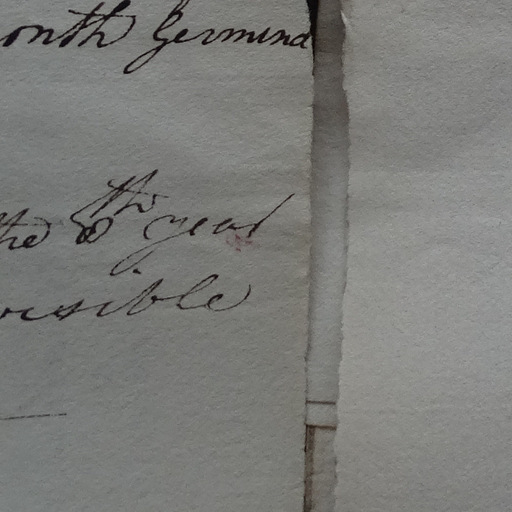 onth Germina
the 8th year
visible